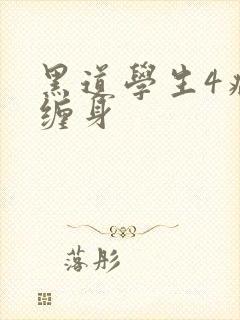 黑道學生4
缠身
落彤